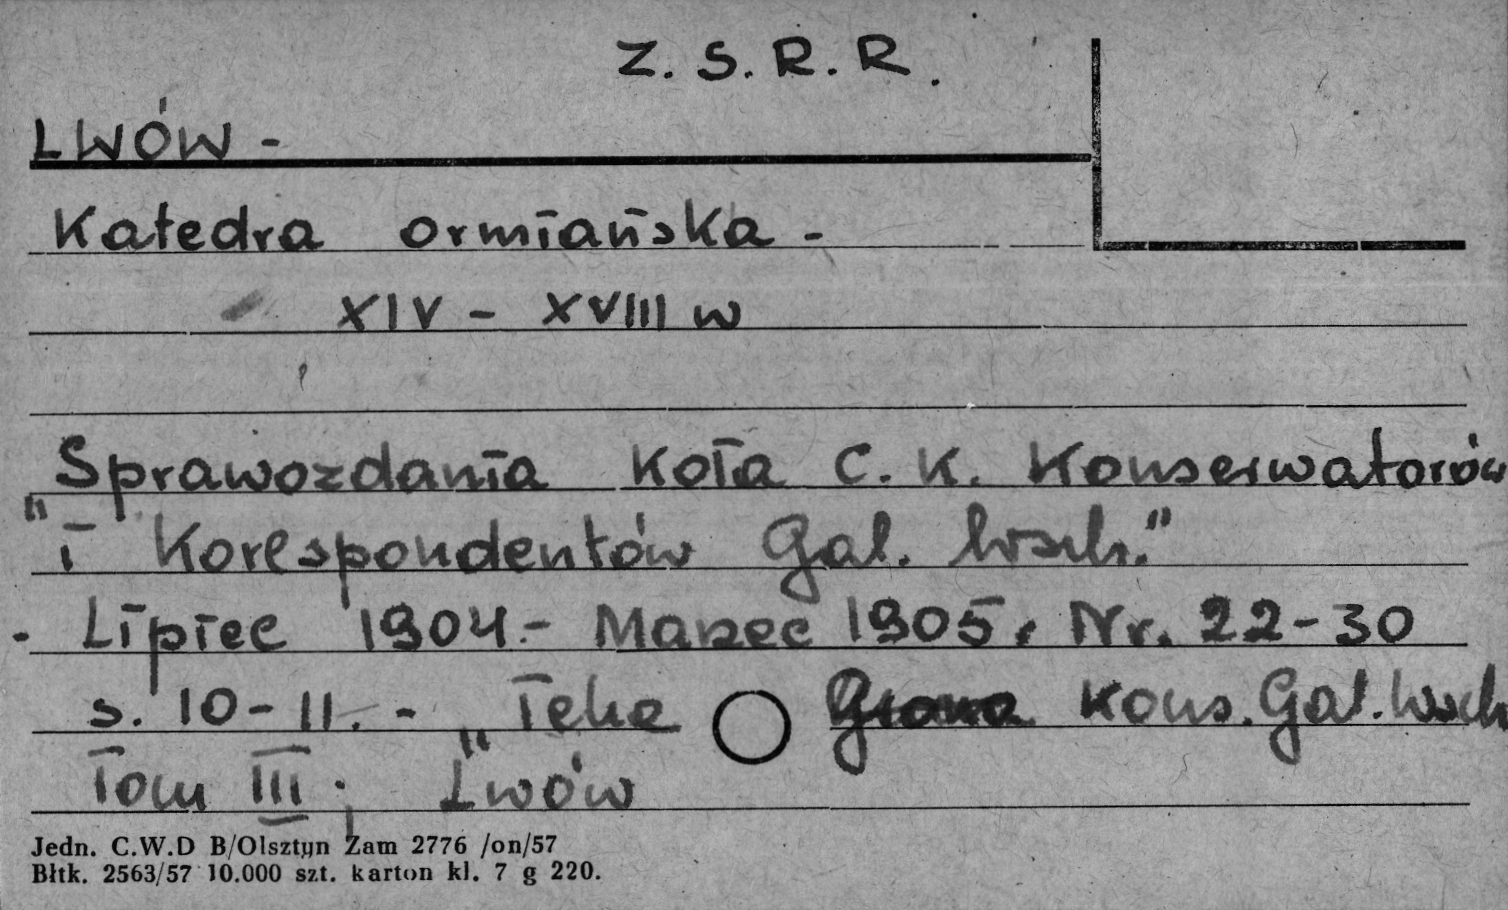 Z. S. R. R.
LWÓW -
Katedra ormiańska -
XIV - XVIII w
Sprawozdania Koła C. K. Konserwatorów
"i Korespondentów Gal. Wsch."
- Lipiec 1904 - Marzec 1905, Nr. 22-30
s. 10-11. - "Teka Grona Kons. Gal. Wsch
Tom III; Lwów
Jedn. C.W.D B/Olsztyn Zam 2776 /on/57
Błtk. 2563/57 10.000 szt. karton kl. 7 g 220.